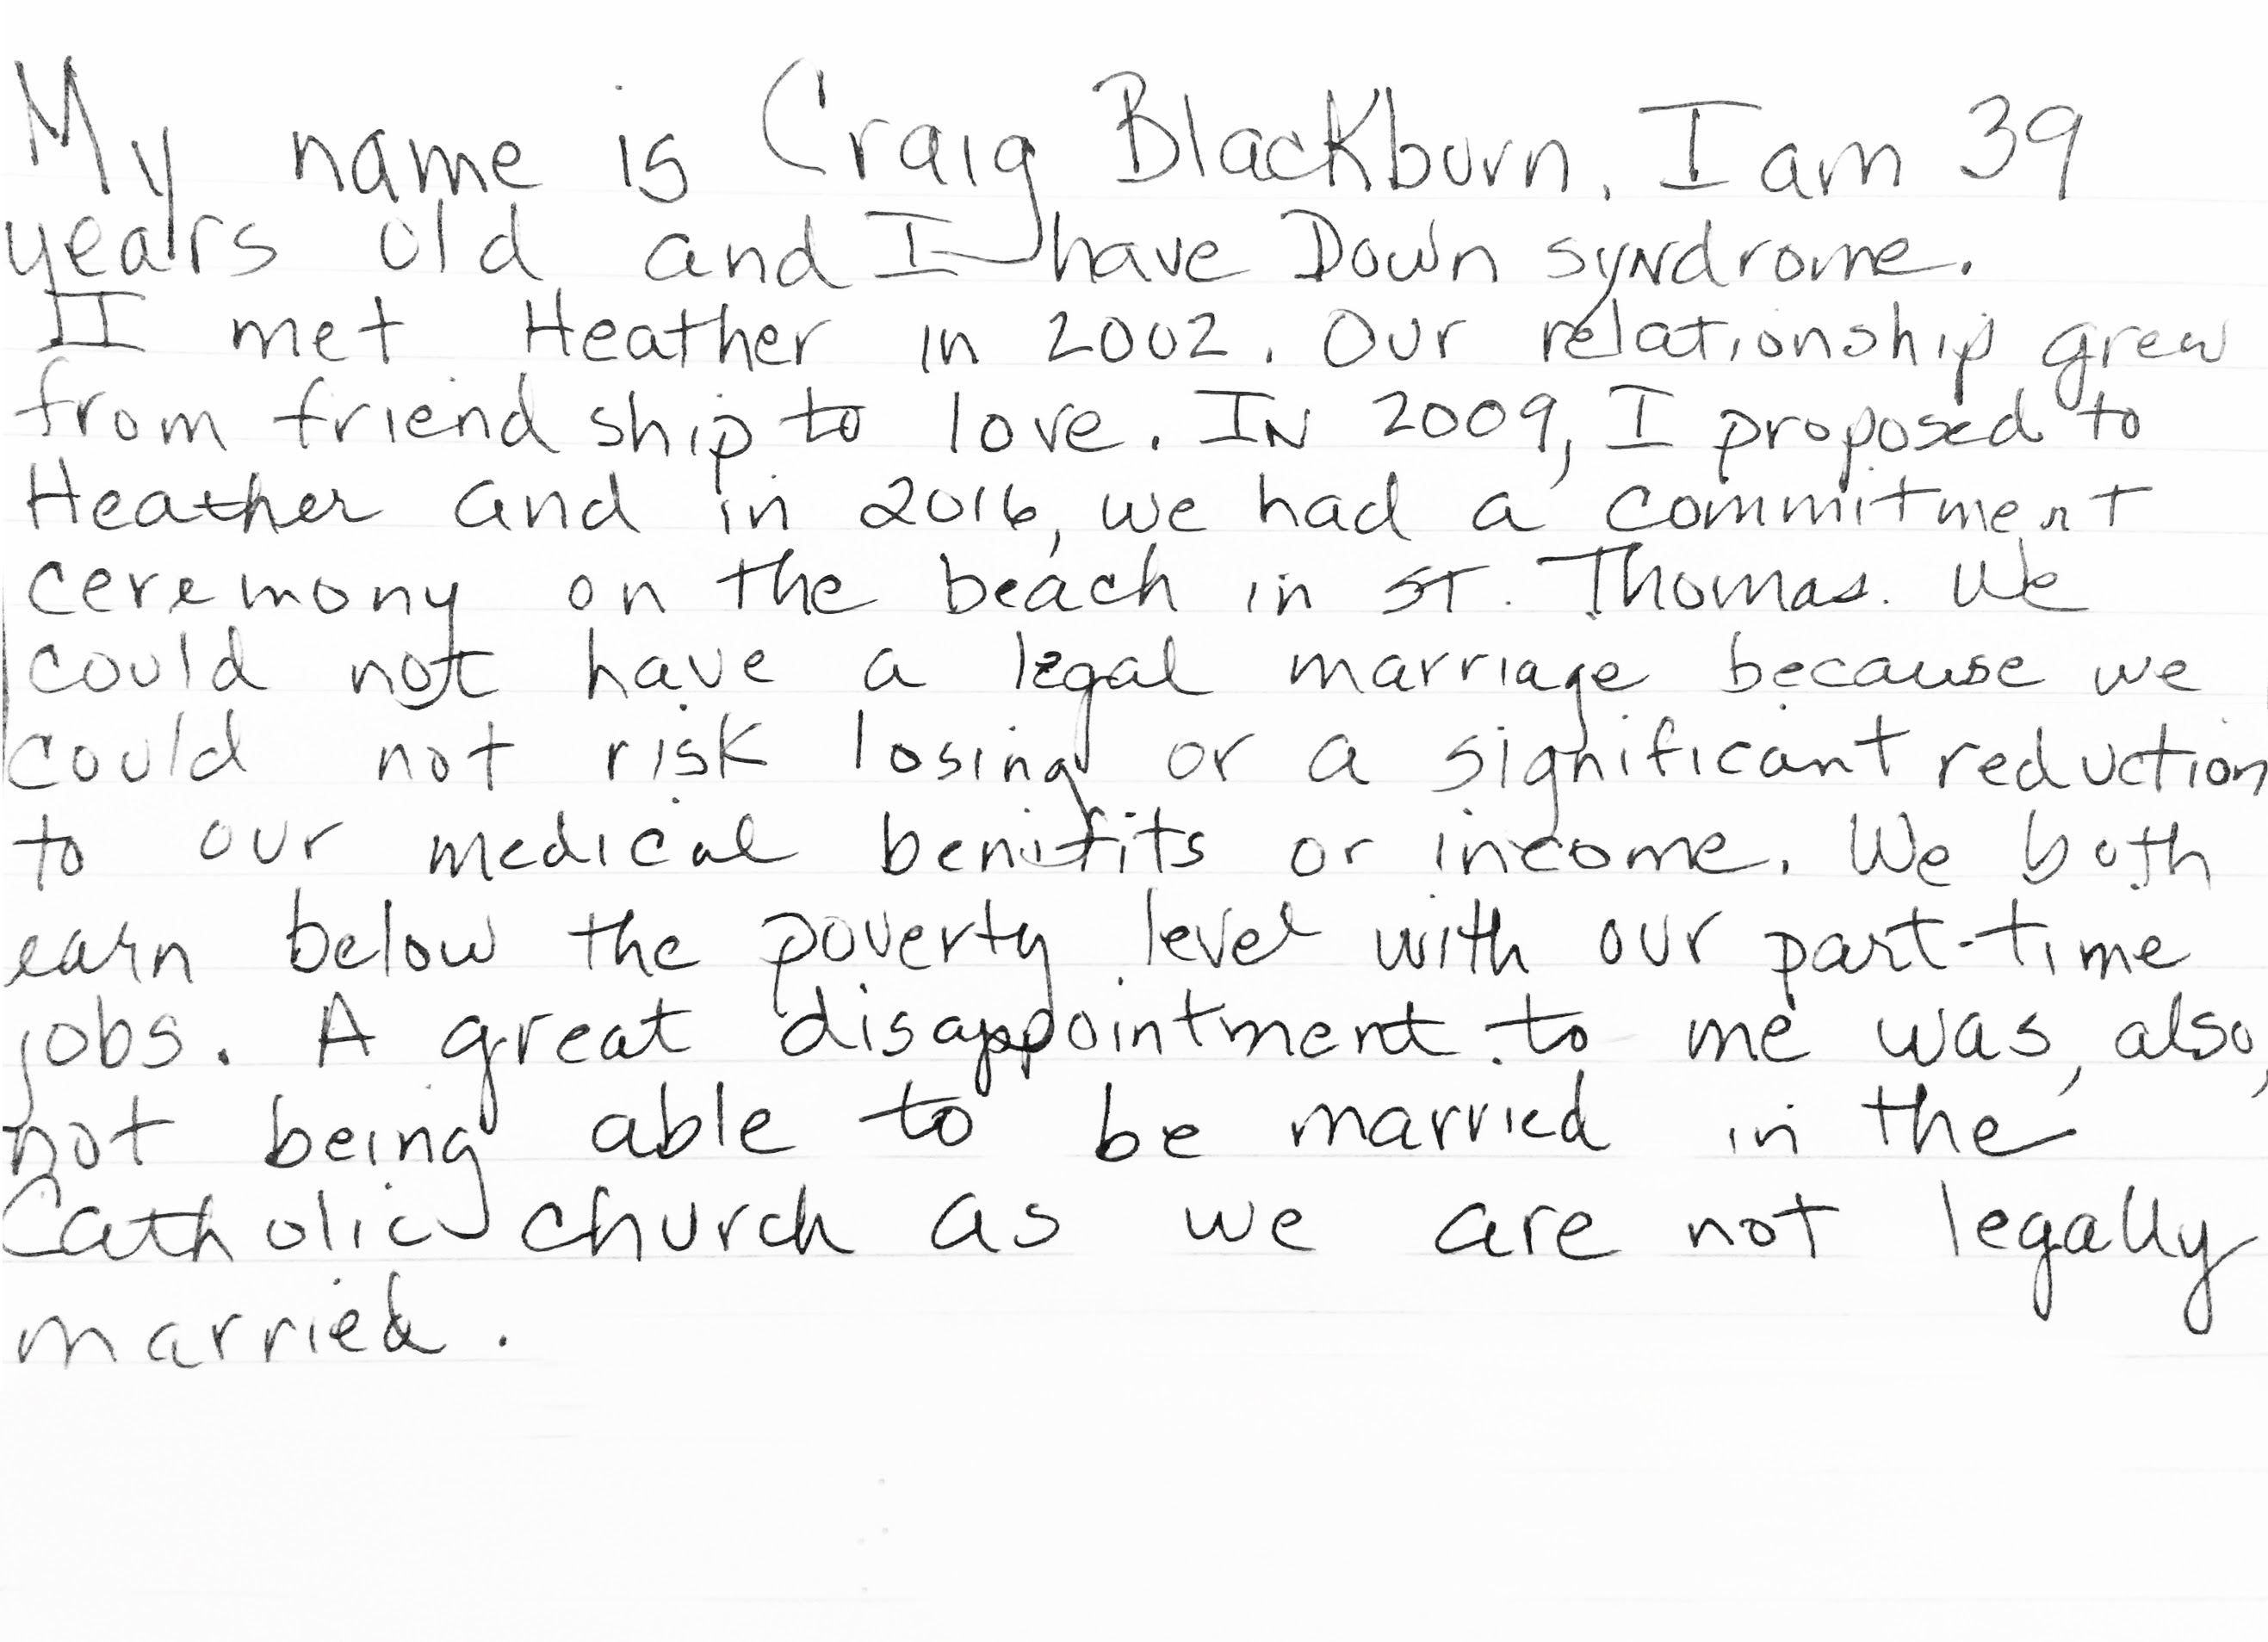 My name is Craig Blackburn. I am 39
years old and I have Down syndrome.
I met Heather in 2002. Our relationship grew
from friend ship to love. IN 2009, I proposed to
Heather and in 2016, we had a commitment
ceremony on the beach in ST. Thomas. We
could not have a legal marriage because we
could not risk losing or a significant reduction
to our medical benifits or income. We both
earn below the poverty level with our part-time
jobs. A great disappointment to me was, also,
not being able to be married in the
Catholic church as we are not legally
married.